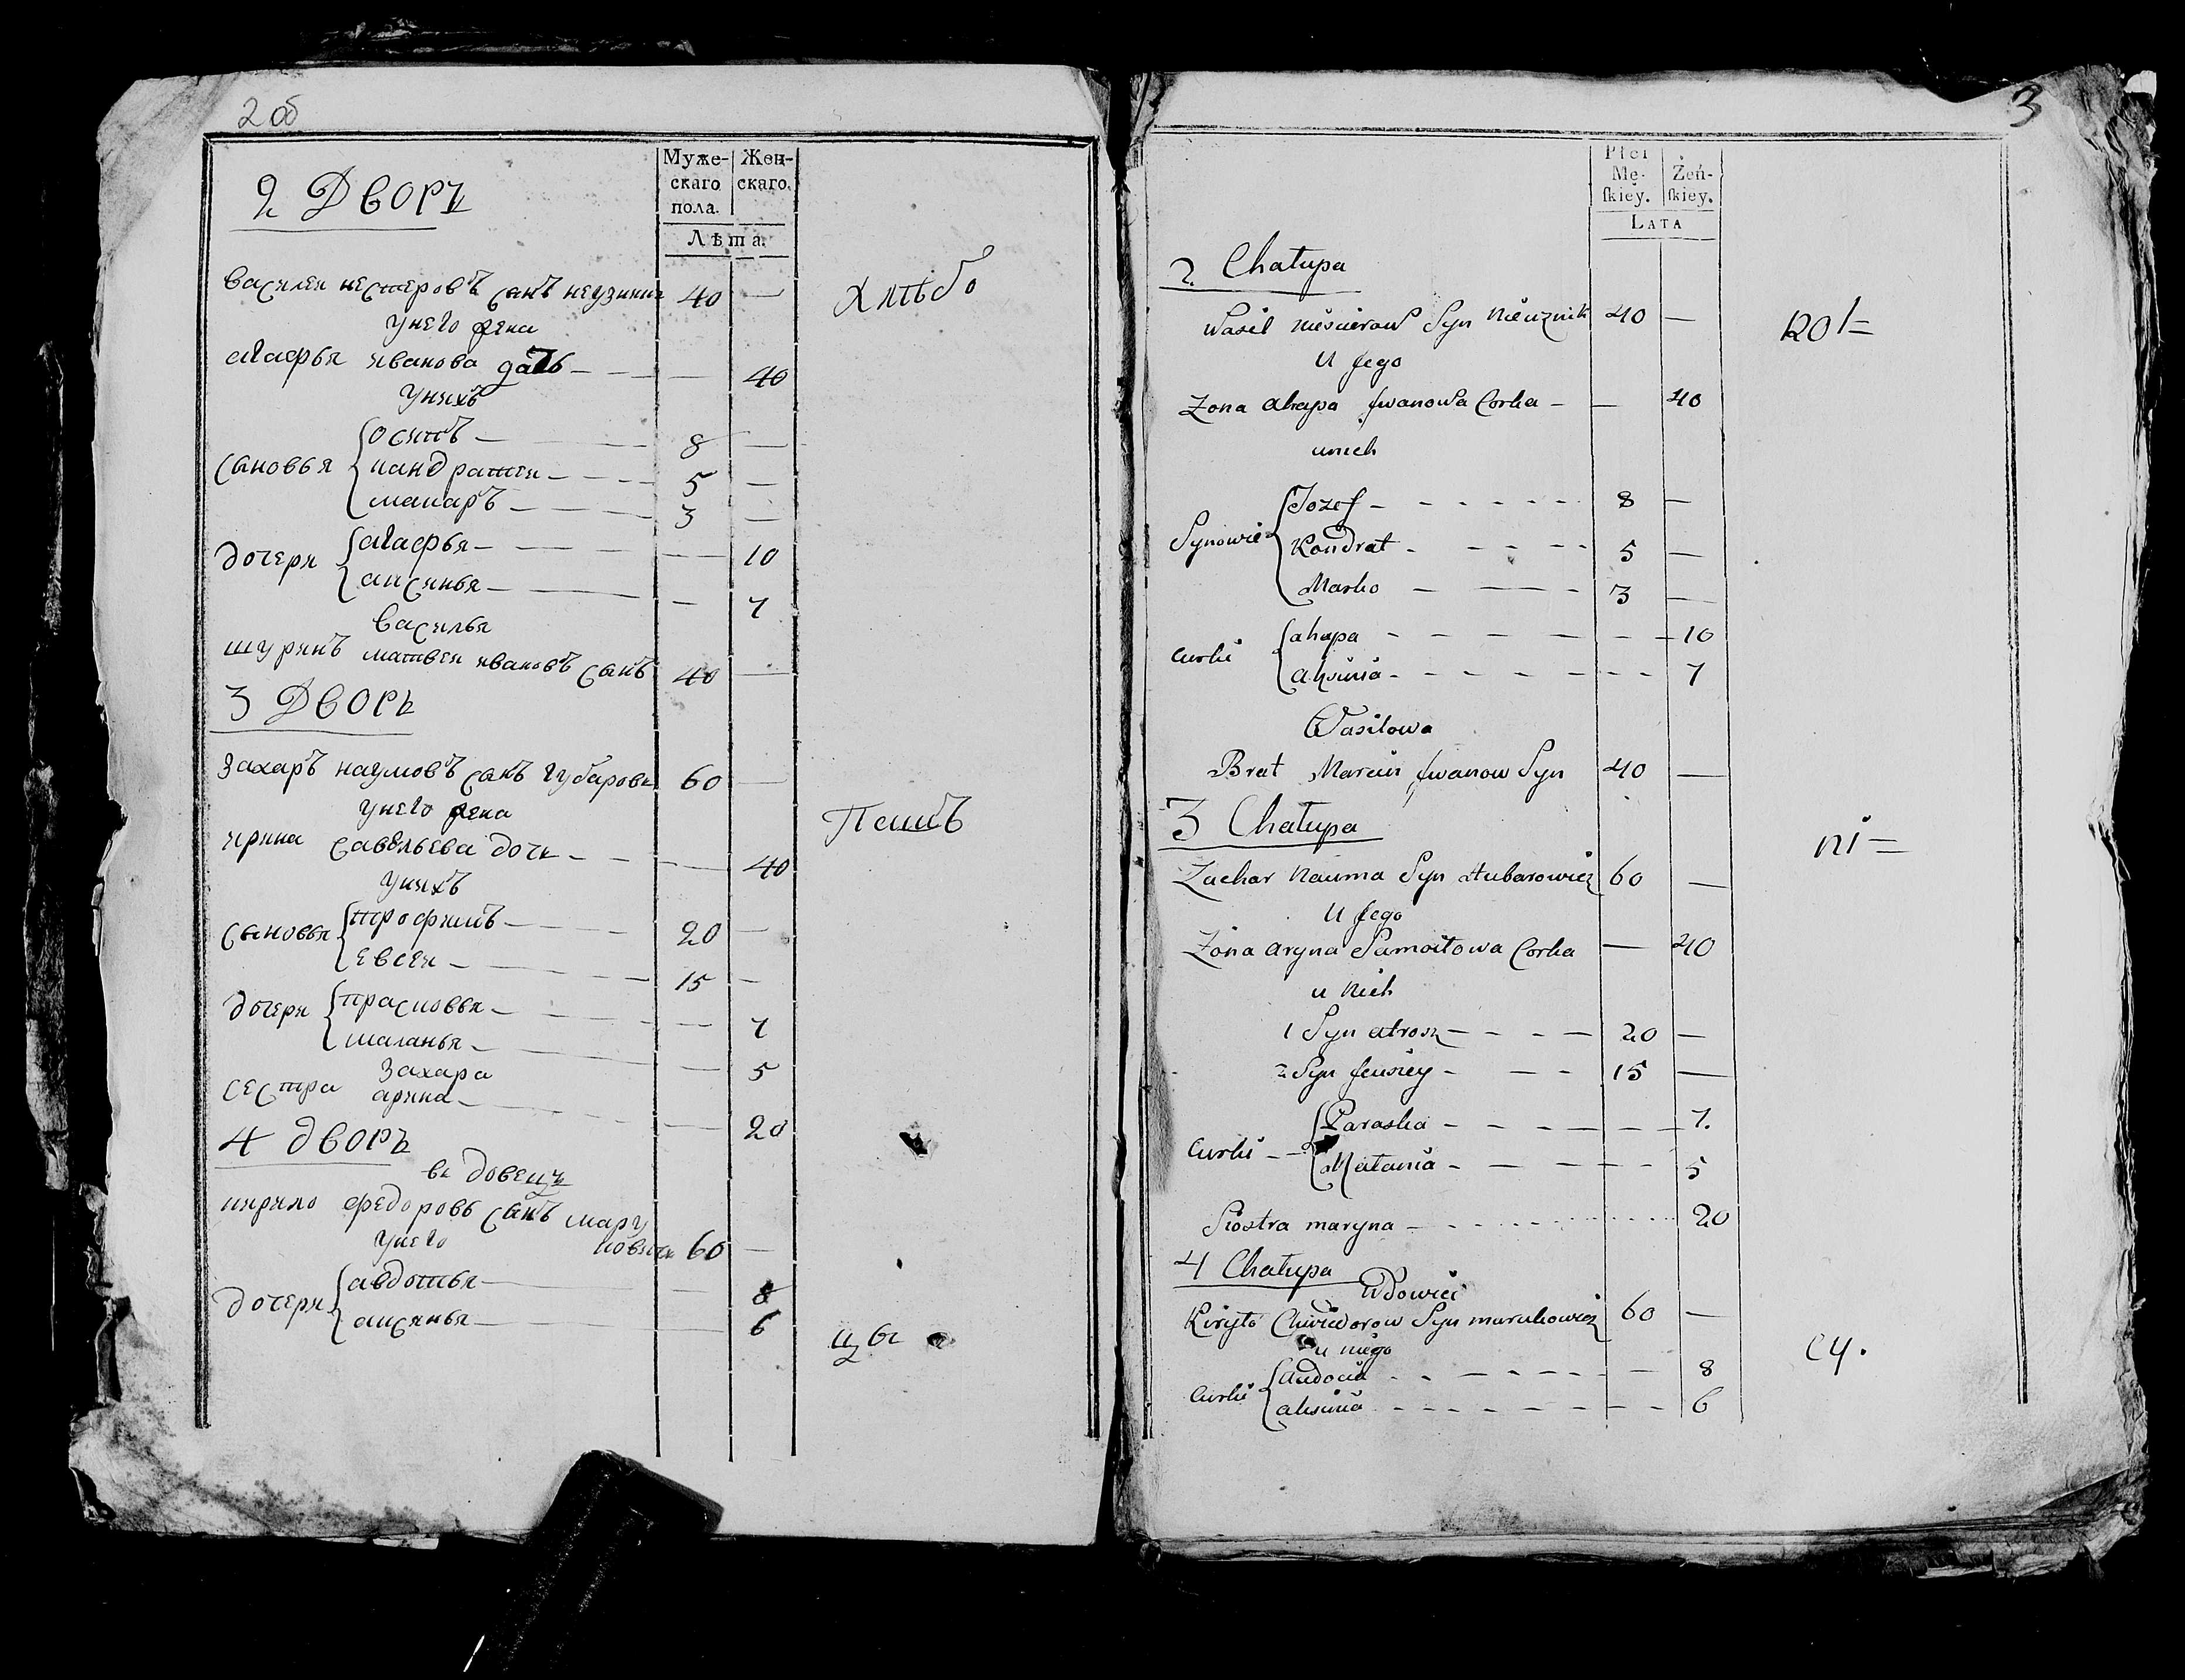 2 об
2 Дворъ
Муже-
скаго
пола.
Жен-
скаго.
Лѣта.
василеи нестеровъ сынъ неузникъ 40 —
хлѣбо
унего жена
агафья иванова дочь — — — 40
унихъ
сыновья
осипъ — — 8 —
кандратеи — — — 5 —
макаръ — — — 3 —
дочери
агафья — — — — 10
аксинья — — — 7
василья
шуринъ матвеи ивановъ сынъ 40 —
3 Дворъ
захаръ наумовъ сынъ губаровичъ 60 —
унего жена
пашъ
ирина савельева дочь — — — 40
унихъ
сыновья
трофимъ — — — 20 —
евсеи — — — 15 —
дочери
прасковья — — — — 7
маланья — — — 5
захара
сестра арина — — — 20
4 дворъ
вдовецъ
кирило федоровъ сынъ мару
унего ковичъ 60 —
дочери
авдотья — — 8
аксинья — — 6
цы
3
Płci
Mę-
skiey.
Żeń-
skiey.
LATA
2 Chałupa
Wasil niescierow Syn Nieuznik 40 —
Rol=
U jego
Zona ahapa Iwanowa Corka — — 40
unich
Synowie
Jozef — — — — — 8 —
Kondrat — — — — 5 —
Marko — — — — 3 —
Curki
ahapa — — — — — — 10
aksinia — — — — — — — 7
Wasilowa
Brat Marcin Iwanow Syn 40 —
3 Chałupa
ni=
Zachar Nauma Syn Hubarowicz 60 —
U jego
Zona aryna Samoitowa Corka — 40
u Nich
1 Syn atrosz — — — — 20 —
2 Syn Jeusiey — — — 15 —
Curki —
Paraska — — — — — — 7.
Matania — — — — — 5
Siostra maryna — — — — — 20
4 Chałupa
Wdowiec
Kiryło Chwiedorow Syn marukowicz 60 —
u niego
cy.
Curki
audocia — — — — — — 8
aksinia — — — — — — — 6